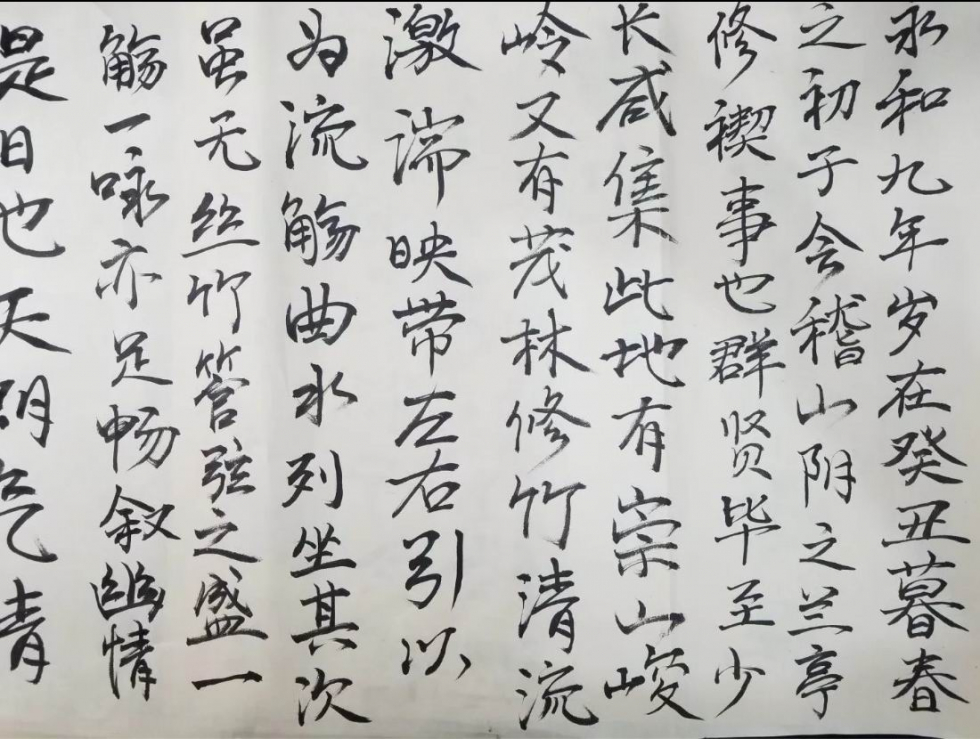 永和九年岁在癸丑暮春
之初于会稽山阴之兰亭
修禊事也群贤毕至少
长咸集此地有崇山峻
岭又有茂林修竹清流
激湍映带左右引以
为流觞曲水列坐其次
虽无丝竹管弦之盛一
觞一咏亦足畅叙幽情
是日也天朗气清